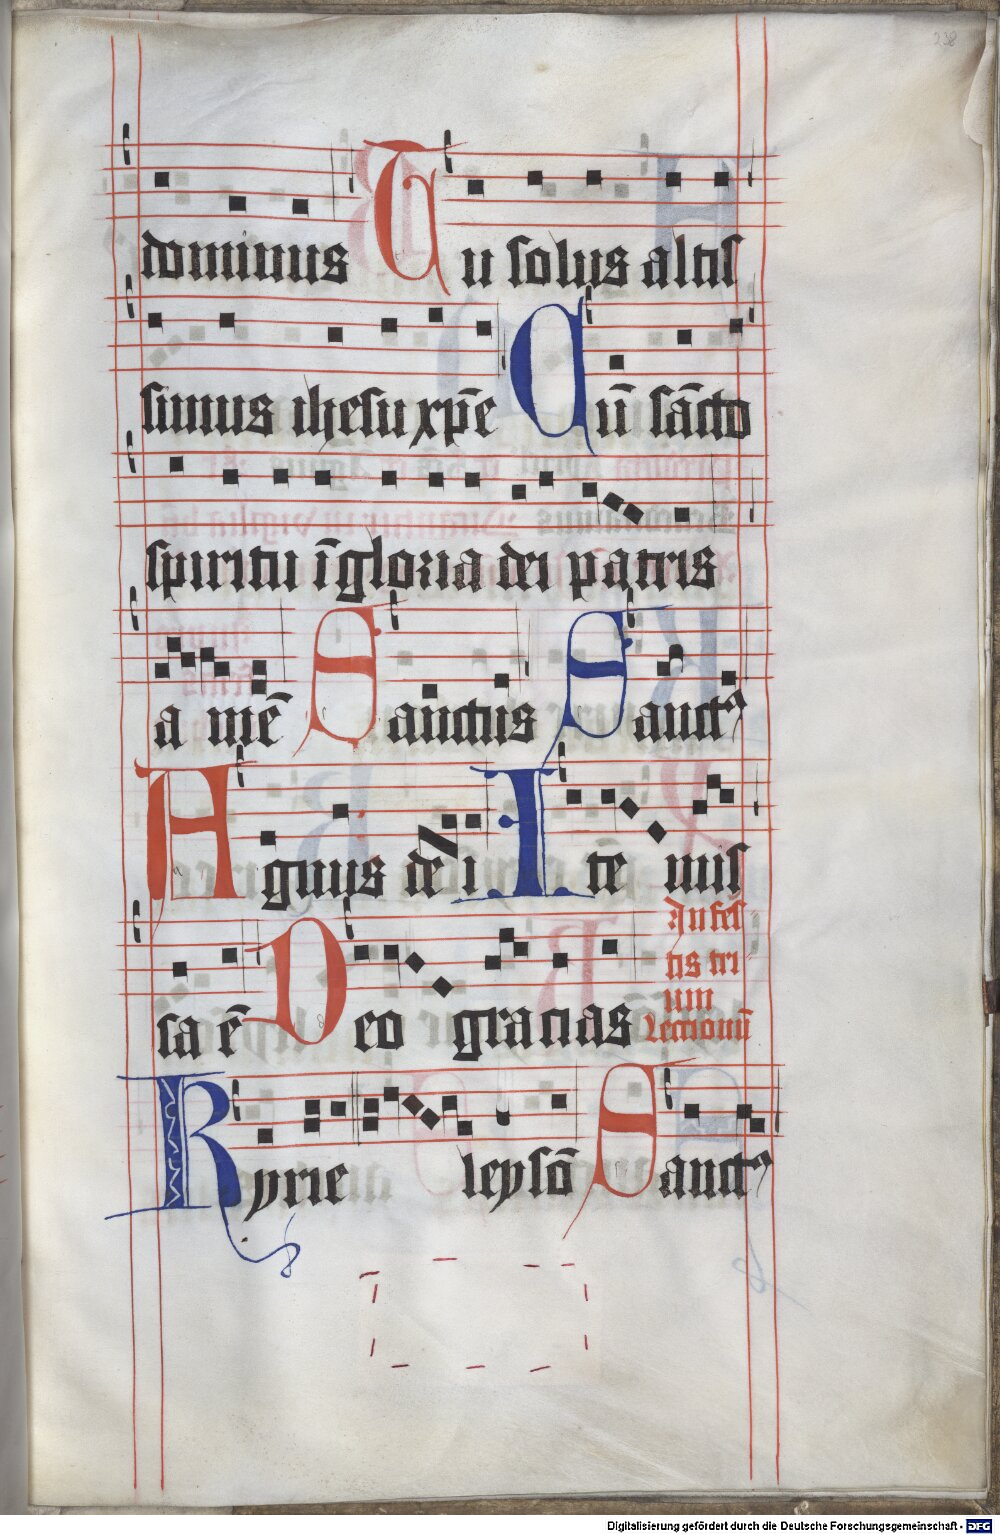 238
dominus Tu solus altis
simus ihesu xp̄e Cū sācto
spiritu ī gloria dei patris
a mē Sanctus Sanctꝰ
Agnus dei Ite mis
In fes
tis tri
um
Lectionū
sa ē Deo gracias
Kyrie leysō Sanctꝰ
Digitalisierung gefördert durch die Deutsche Forschungsgemeinschaft - DFG